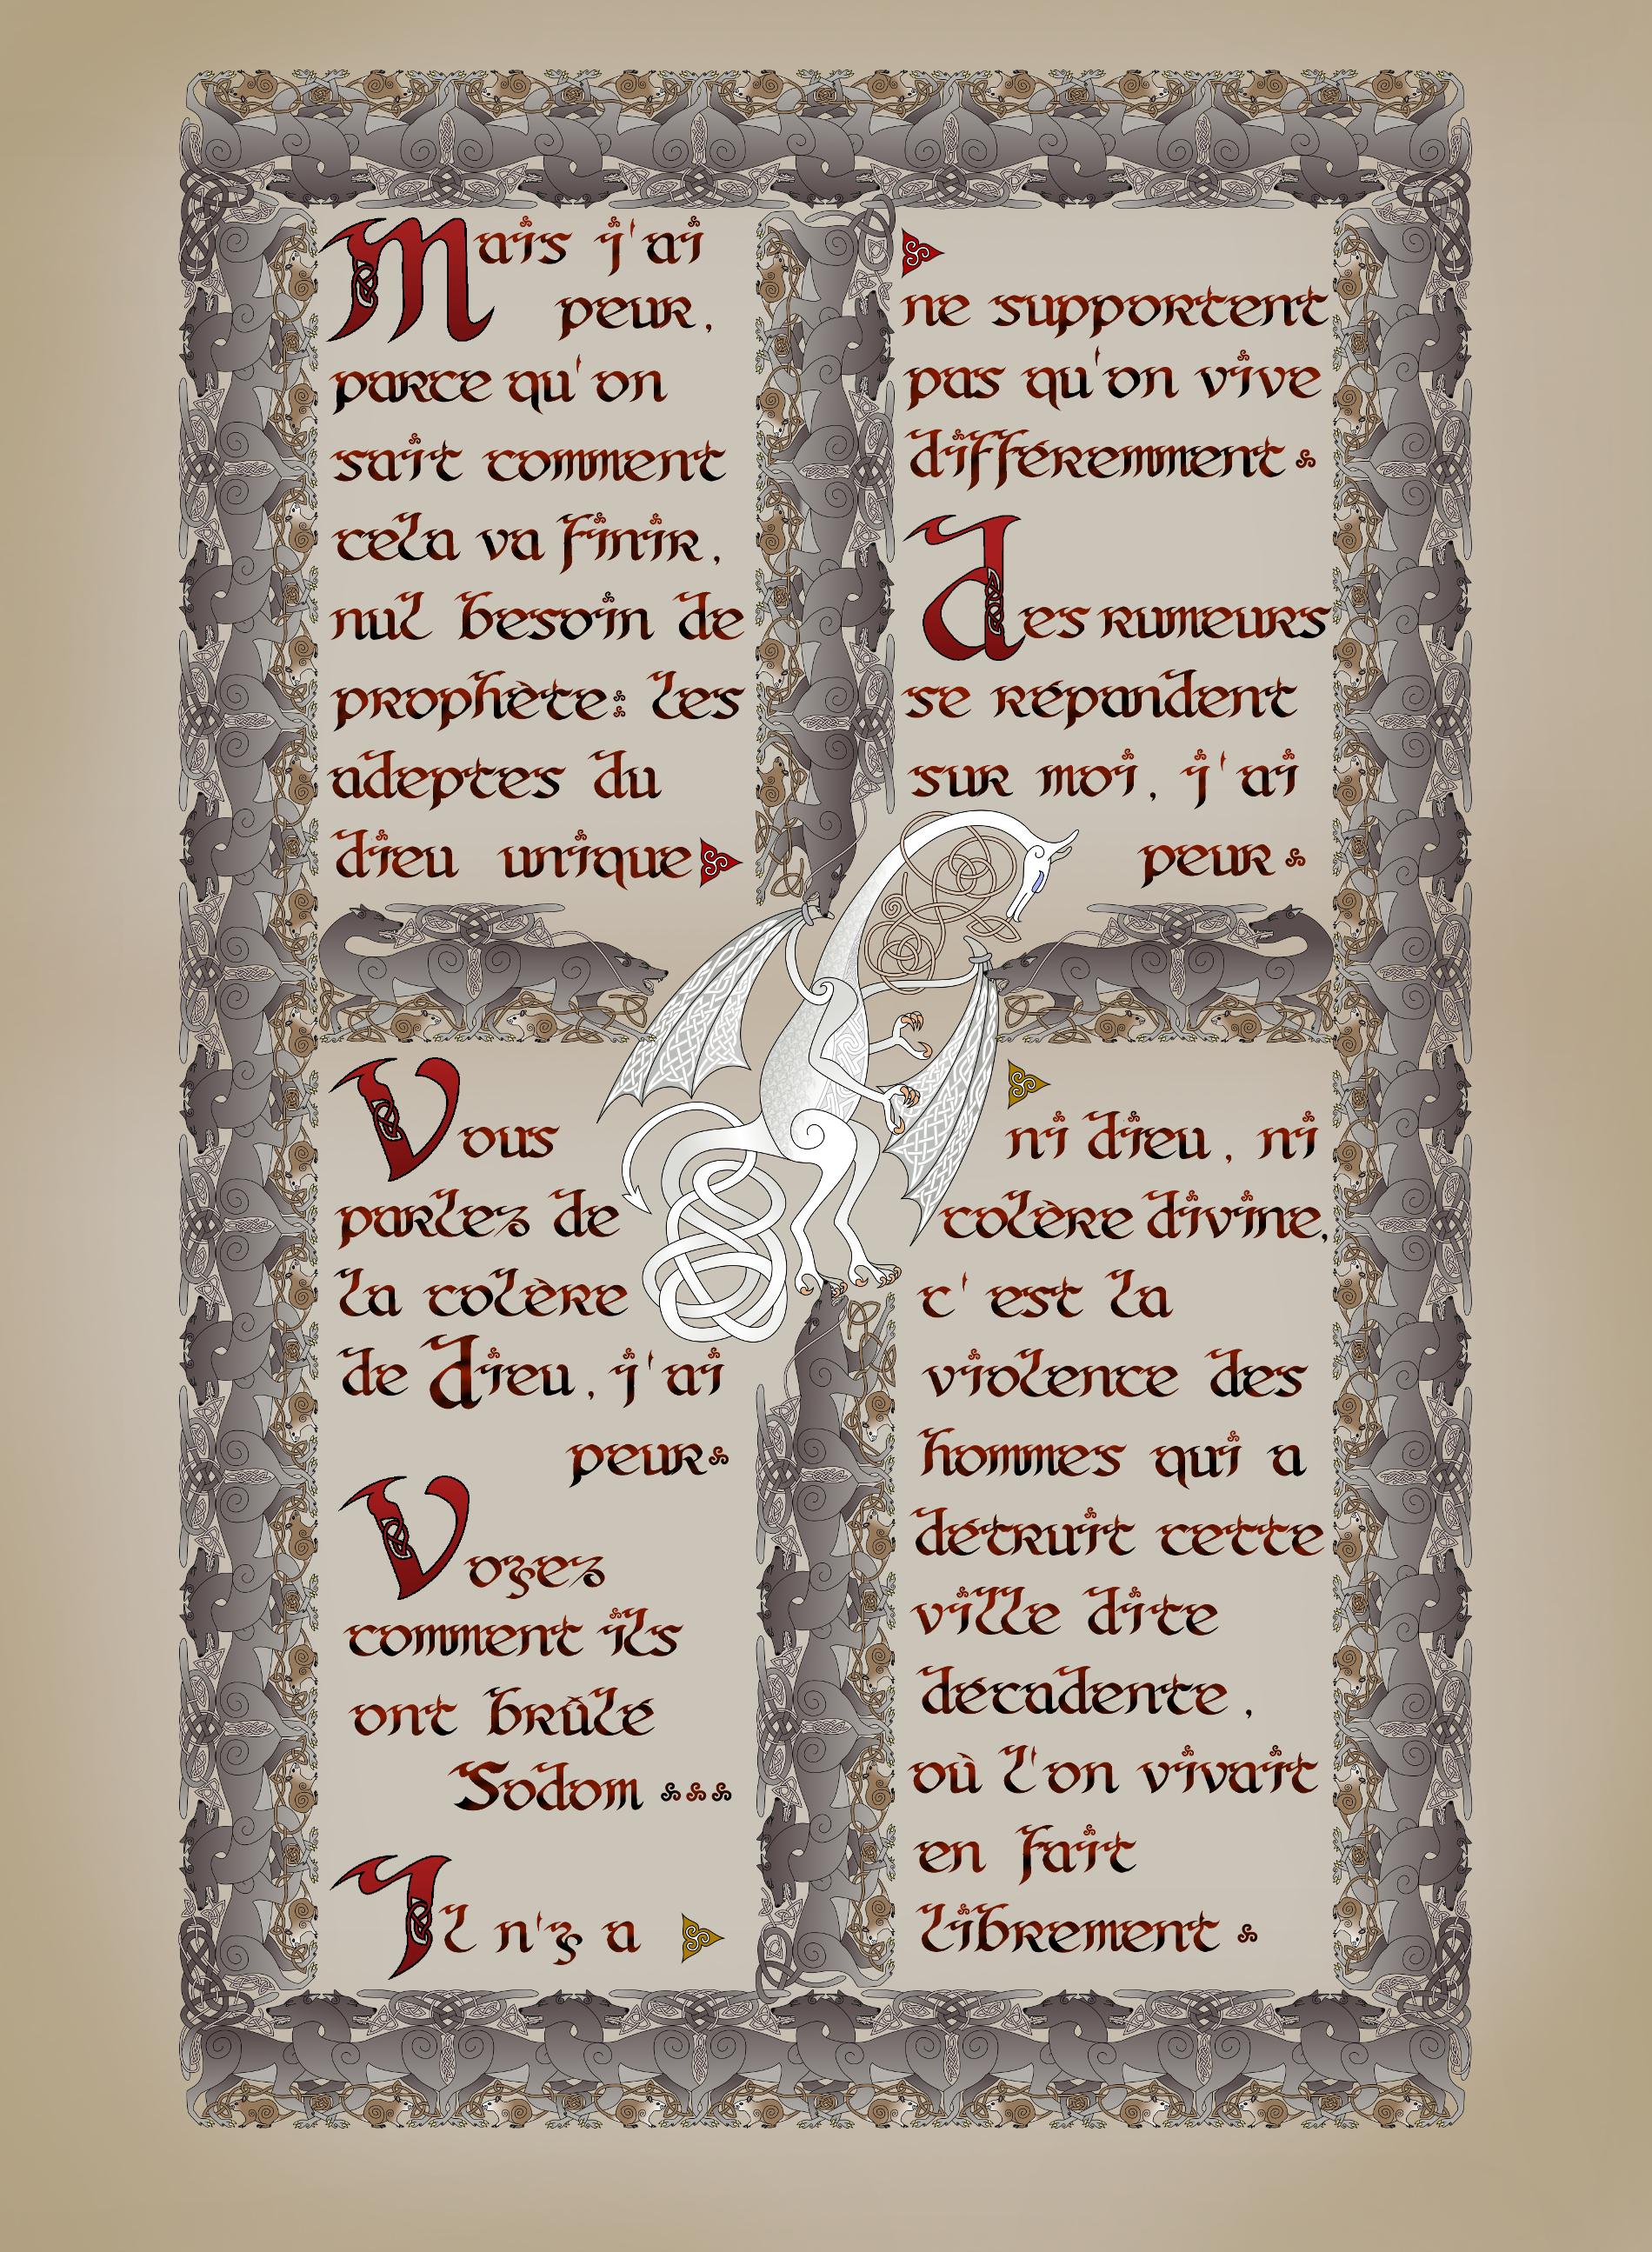 Mais j'ai
peur,
parce qu'on
sait comment
cela va finir,
nul besoin de
prophète: les
adeptes du
dieu unique
ne supportent
pas qu'on vive
différemment.
des rumeurs
se répandent
sur moi, j'ai
peur.
Vous
parlez de
la colère
de Dieu, j'ai
peur.
Voyez
comment ils
ont brûlé
Sodom...
Il n'y a
ni dieu, ni
colère divine,
c'est la
violence des
hommes qui a
détruit cette
ville dite
décadente,
où l'on vivait
en fait
librement.